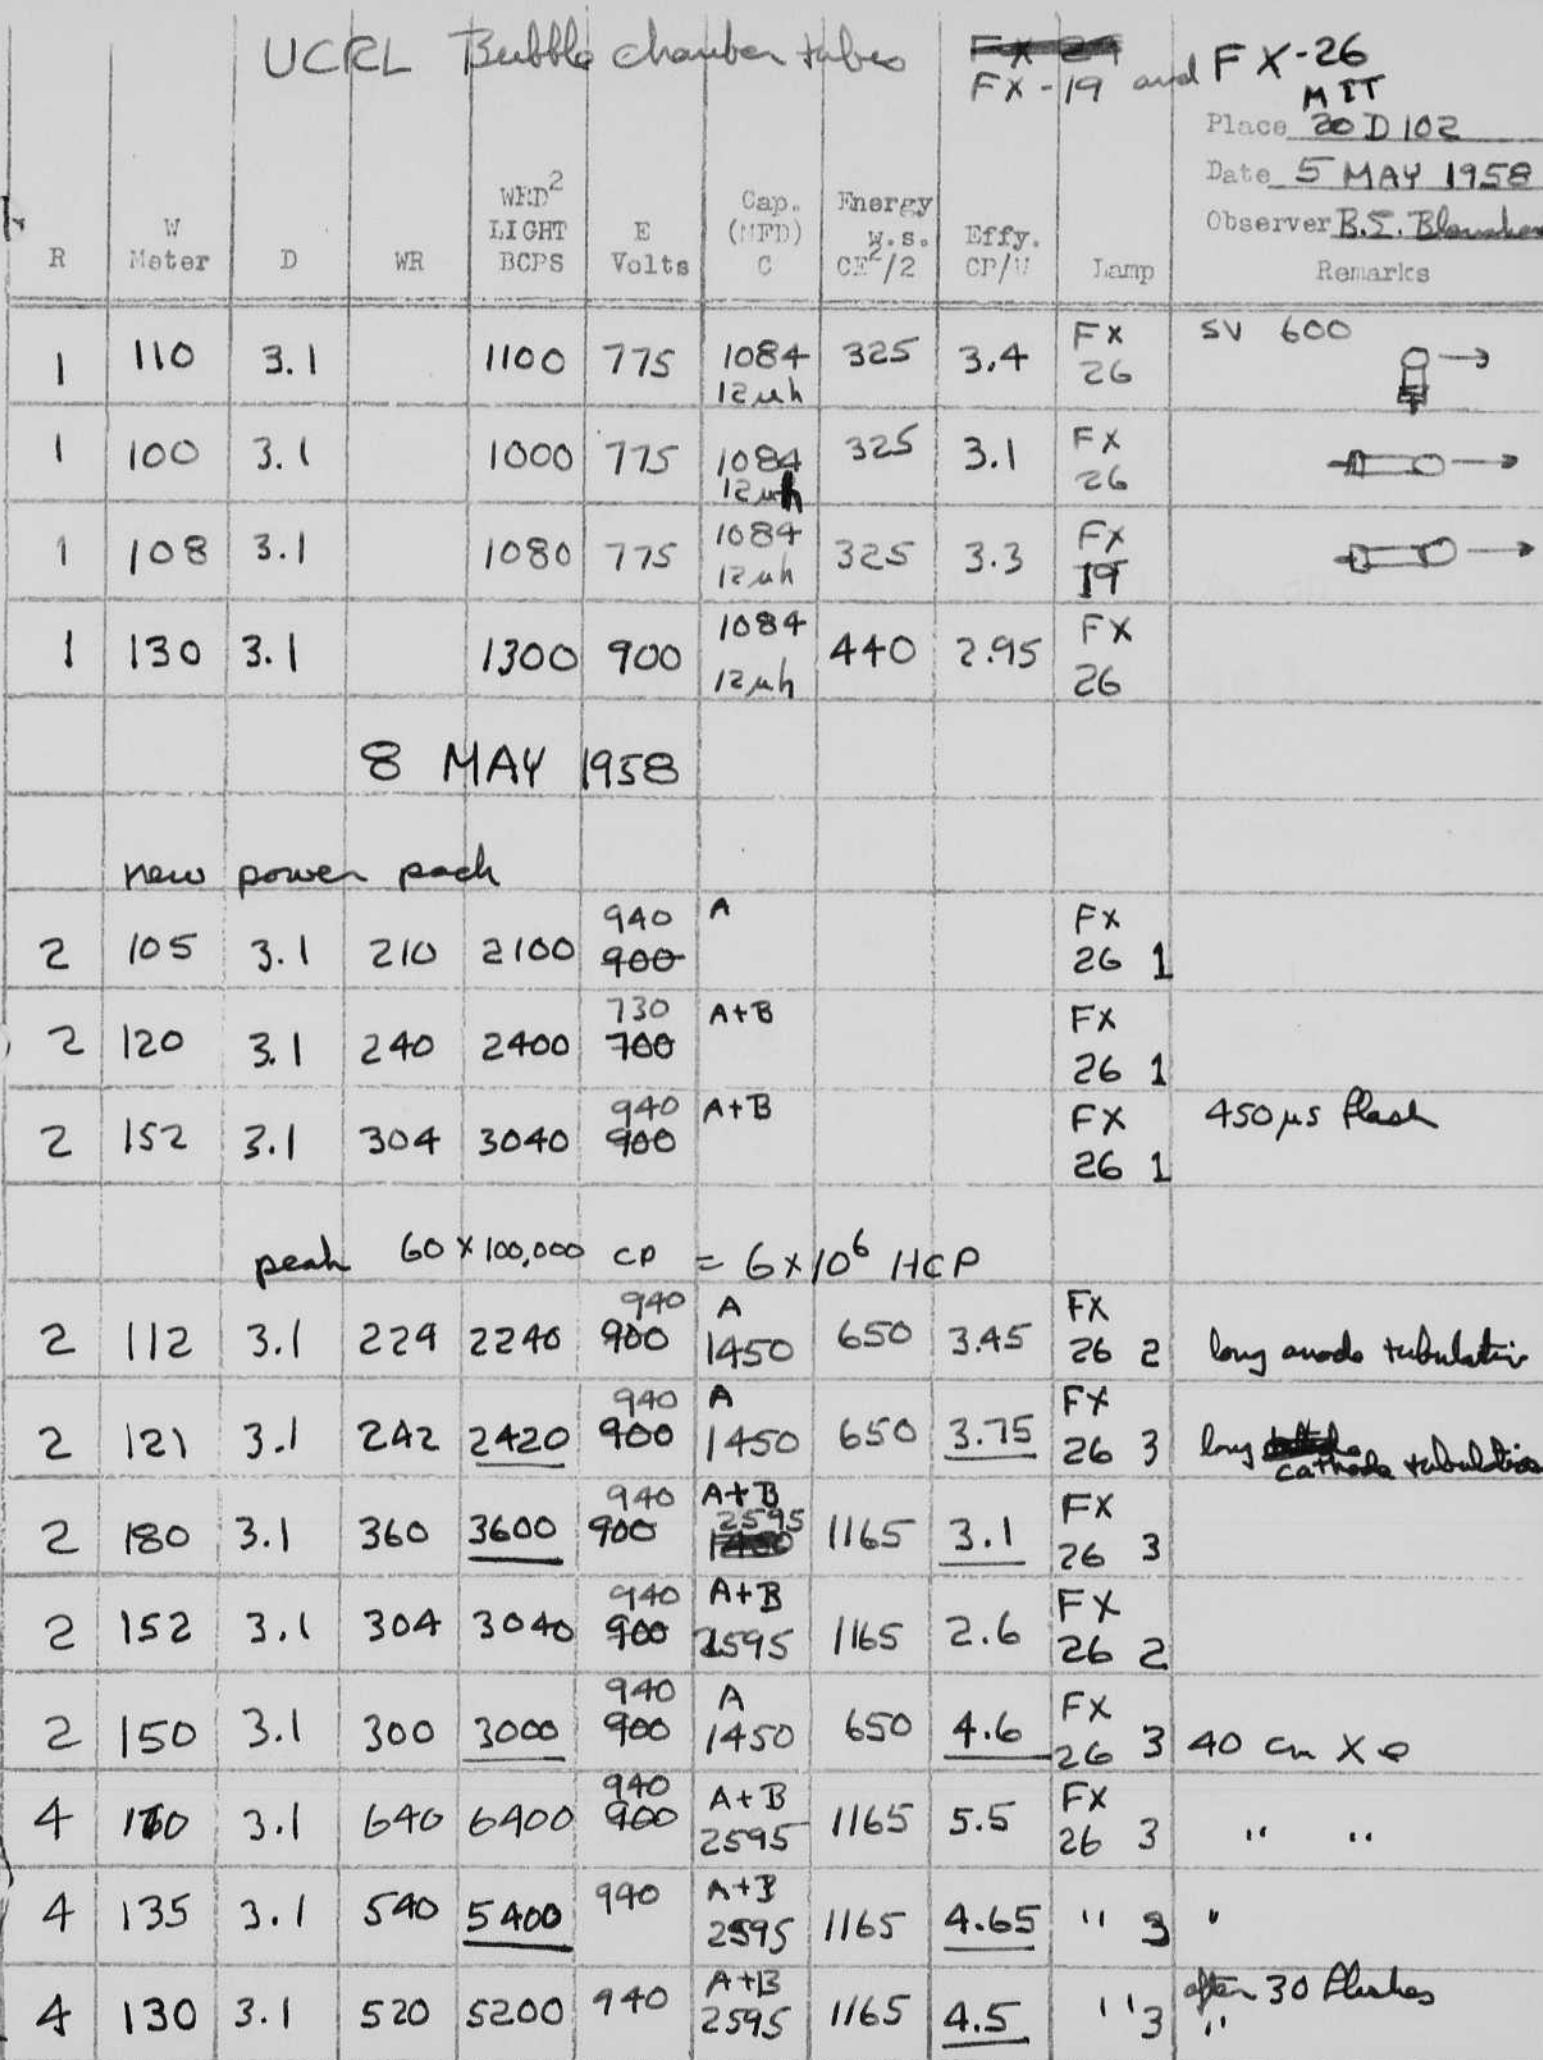 UCRL Bubble chamber tubes FX-19 and FX-26
MIT
Place 20 D 102
Date 5 MAY 1958
Observer B.E.
R W Meter D WR WRD2 LIGHT BCPS E Volts Cap. (MFD) C Energy w.s. CE2/2 Effy. CP/W Lamp Remarks
1 110 3.1 1100 775 1084 12 µh 325 3.4 FX 26 SV 600
1 100 3.1 1000 775 1084 12 µh 325 3.1 FX 26
1 108 3.1 1080 775 1084 12 µh 325 3.3 FX 19
1 130 3.1 1300 900 1084 12 µh 440 2.95 FX 26
8 MAY 1958
new power pack
2 105 3.1 210 2100 940 900 A FX 26 1
2 120 3.1 240 2400 730 700 A+B FX 26 1
2 152 3.1 304 3040 940 900 A+B FX 26 1 450 µs flash
peak 60 × 100,000 CP = 6×10^6 HCP
2 112 3.1 224 2240 940 900 A 1450 650 3.45 FX 26 2 long anode tubulation
2 121 3.1 242 2420 940 900 A 1450 650 3.75 FX 26 3 long cathode tubulation
2 180 3.1 360 3600 940 900 A+B 2595 1165 3.1 FX 26 3
2 152 3.1 304 3040 940 900 A+B 2595 1165 2.6 FX 26 2
2 150 3.1 300 3000 940 900 A 1450 650 4.6 FX 26 3 40 cm Xe
4 160 3.1 640 6400 940 900 A+B 2595 1165 5.5 FX 26 3 " "
4 135 3.1 540 5400 940 A+B 2595 1165 4.65 " 3 "
4 130 3.1 520 5200 940 A+B 2595 1165 4.5 " 3 after 30 flashes "